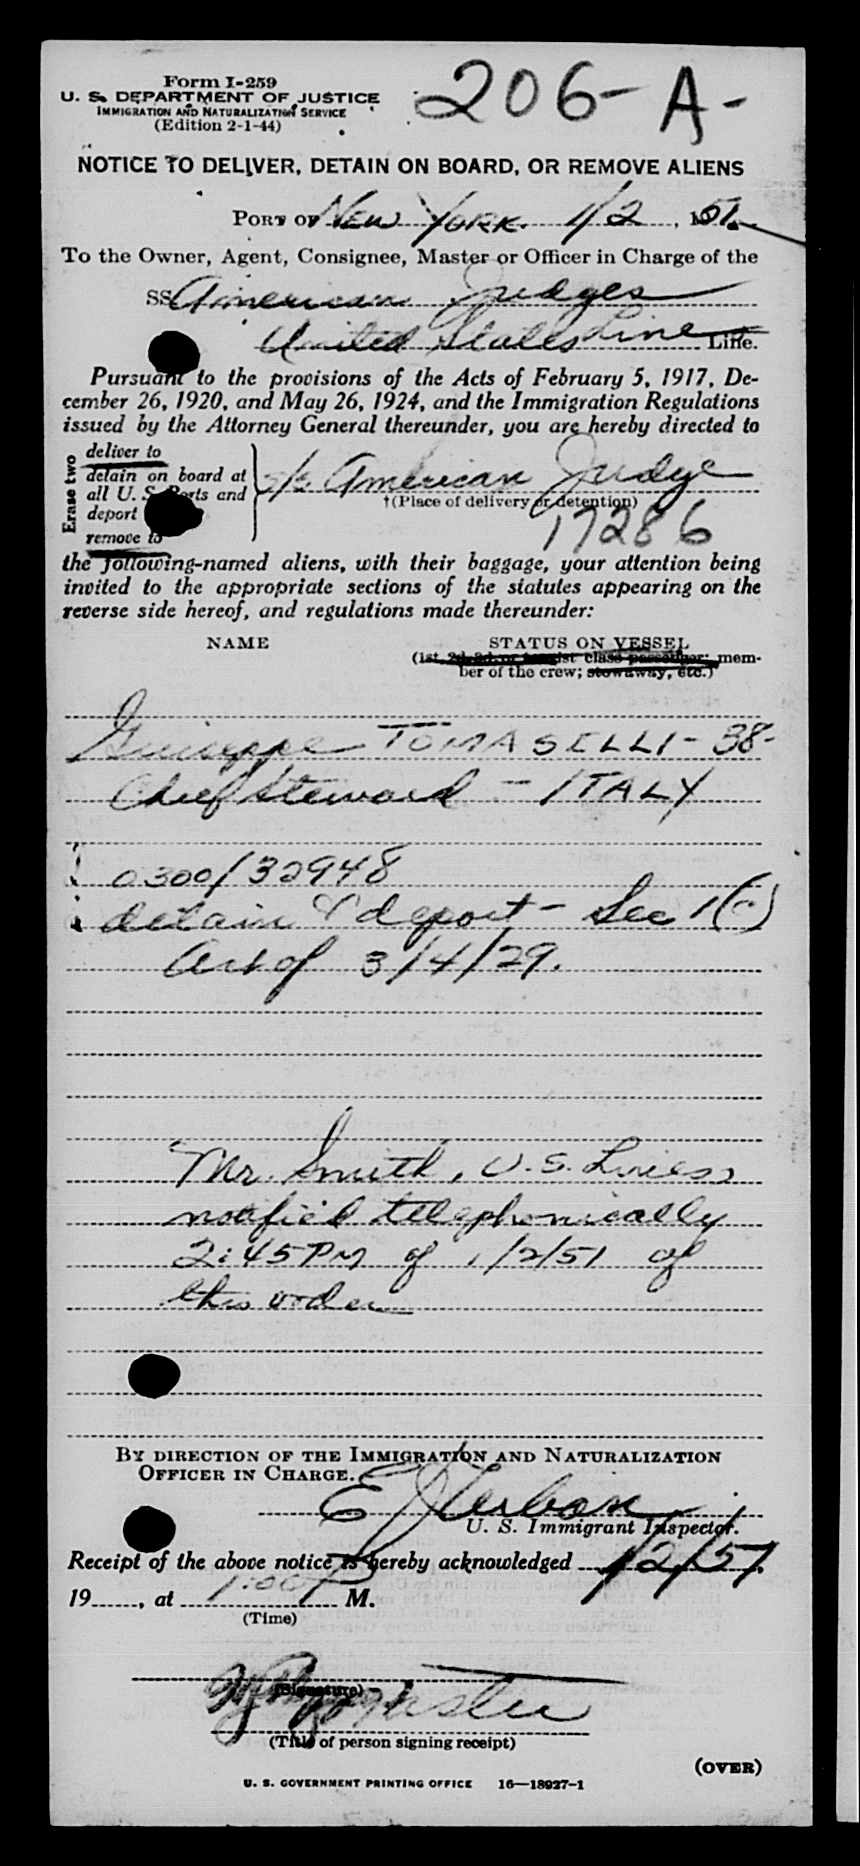 Form I-259
U. S. DEPARTMENT OF JUSTICE
IMMIGRATION AND NATURALIZATION SERVICE
(Edition 2-1-44)
206-A-
NOTICE TO DELIVER, DETAIN ON BOARD, OR REMOVE ALIENS
PORT OF New York. 1/2, 1951
To the Owner, Agent, Consignee, Master or Officer in Charge of the
SS American Judges
United States Line Line.
Pursuant to the provisions of the Acts of February 5, 1917, De-
cember 26, 1920, and May 26, 1924, and the Immigration Regulations
issued by the Attorney General thereunder, you are hereby directed to
Erase two
deliver to
detain on board at
all U. S. Ports and
deport
remove to
S/S American Judge
†(Place of delivery or detention)
17286
the following-named aliens, with their baggage, your attention being
invited to the appropriate sections of the statutes appearing on the
reverse side hereof, and regulations made thereunder:
NAME STATUS ON VESSEL
(1st, 2d, 3d, or tourist class passenger; mem-
ber of the crew; stowaway, etc.)
Guiseppe TOMASELLI - 38-
Chief Steward - ITALY
0300/32948
detain & deport - Sec 1(c)
Act of 3/4/29.
Mr. Smith, U.S. Lines,
notified telephonically
2:45 PM of 1/2/51 of
this order
BY DIRECTION OF THE IMMIGRATION AND NATURALIZATION
OFFICER IN CHARGE.
E J
U. S. Immigrant Inspector.
Receipt of the above notice is hereby acknowledged 1/2/51,
19......, at 1:00 P M.
(Time)
(Signature)
Master
(Title of person signing receipt)
(OVER)
U. S. GOVERNMENT PRINTING OFFICE 16—18927-1